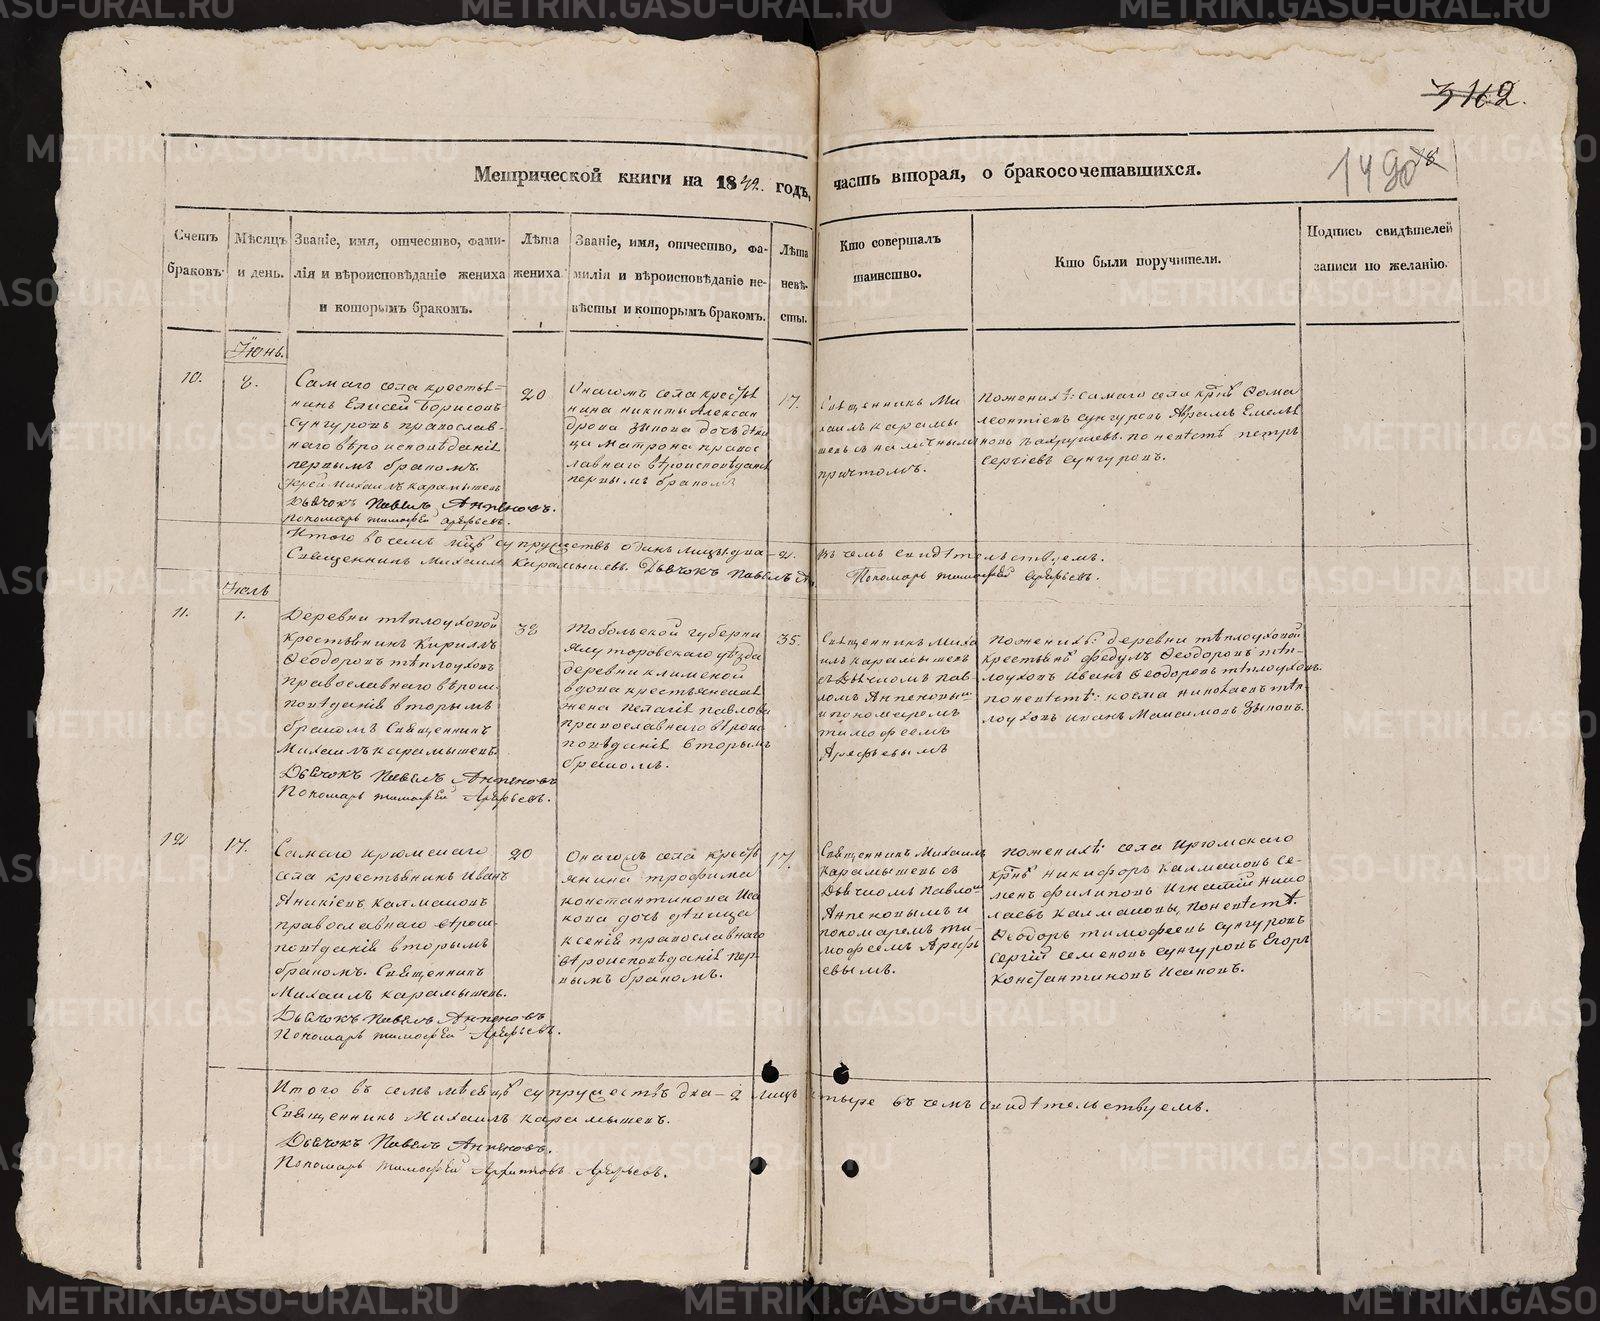 3162.
1490
Метрической книги на 1842. годъ, часть вторая, о бракосочетавшихся.
Счетъ браковъ.
Мѣсяцъ и день.
Званіе, имя, отчество, фами-
лія и вѣроисповѣданіе жениха
и которымъ бракомъ.
Лѣта
жениха
Званіе, имя, отчество, фа-
милія и вѣроисповѣданіе не-
вѣсты и которымъ бракомъ.
Лѣта
невѣ-
сты.
Кто совершалъ
таинство.
Кто были поручители.
Подпись свидѣтелей
записи по желанію.
Іюнь.
10.
8.
Самаго села крестья-
нинъ Елисей Борисовъ
Сунгуровъ православ-
наго вѣроисповѣданія
первымъ бракомъ.
Іерей Михаилъ Карамышевъ
Дьячокъ Павелъ
Пономарь Тимофей Арефьевъ.
20
Онагожъ села крестья
нина Никиты Алексан
дрова Зыкова дочь дѣви
ца Матрона правос
лавнаго вѣроисповѣданія
первымъ бракомъ
17.
Священникъ Ми
хаилъ Карамы
шевъ съ наличнымъ
причтомъ.
По женихѣ: самаго села Фома
Леонтіевъ Сунгуровъ Абрамъ Емелья
новъ Вахрушевъ. по невѣстѣ Петръ
Сергіевъ Сунгуровъ.
Итого въ семъ супружествъ одинъ лицъ два — 2. въ чемъ свидѣтельствуемъ.
Священникъ Михаилъ Карамышевъ. Дьячокъ Павелъ
Пономарь Тимофей Арефьевъ.
Іюль
11.
1.
Деревни Тѣплоуховой
крестьянинъ Кирилъ
Ѳеодоровъ Тѣплоуховъ
православнаго вѣроис-
повѣданія вторымъ
бракомъ Священникъ
Михаилъ Карамышевъ.
Дьячокъ Павелъ
Пономарь Тимофей Арефьевъ.
38
Тобольской губерни
Ялуторовскаго уѣзда
деревни Клименой
вдова крестьянская
жена Пелагія Павлова
православнаго вѣроис
повѣданія вторымъ
бракомъ.
35.
Священникъ Миха
илъ Карамышевъ
съ Дьячкомъ Пав
ломъ
и пономаремъ
Тимофеемъ
Арефьевымъ
По женихѣ: деревни Тѣплоуховой
крестьяне Федулъ Ѳеодоровъ Теп-
лоуховъ Иванъ Ѳеодоровъ Тѣплоуховъ.
по невѣстѣ: Косма Николаевъ Теп-
лоуховъ Иванъ Максимовъ Зыковъ.
12
17.
Самаго Ирюмскаго
села крестьянинъ Иванъ
Аникіевъ Калмаковъ
православнаго вѣроис-
повѣданія вторымъ
бракомъ. Священникъ
Михаилъ Карамышевъ.
Дьячокъ Павелъ
Пономарь Тимофей Арефьевъ.
20
Онагожъ села кресть
янина Трофима
Константинова Иса
кова дочь дѣвица
Ксенія православнаго
вѣроисповѣданія пер
вымъ бракомъ.
17.
Священникъ Михаилъ
Карамышевъ съ
Дьячкомъ Павло
и
пономаремъ Ти-
мофеемъ Арефь
евымъ.
По женихѣ: села Ирюмскаго
Никифоръ Калмаковъ Се-
менъ Филиповъ Игнатій Нико
лаевъ Калмаковы, по невѣстѣ:
Ѳеодоръ Тимофеевъ Сунгуровъ
Сергій Семеновъ Сунгуровъ Егоръ
Константиновъ Исаковъ.
Итого въ семъ мѣсяцѣ супружествъ два — 2 лицъ четыре въ чемъ свидѣтельствуемъ.
Священникъ Михаилъ Карамышевъ.
Дьячокъ Павелъ
Пономарь Тимофей Арефьевъ.
METRIKI.GASO-URAL.RU